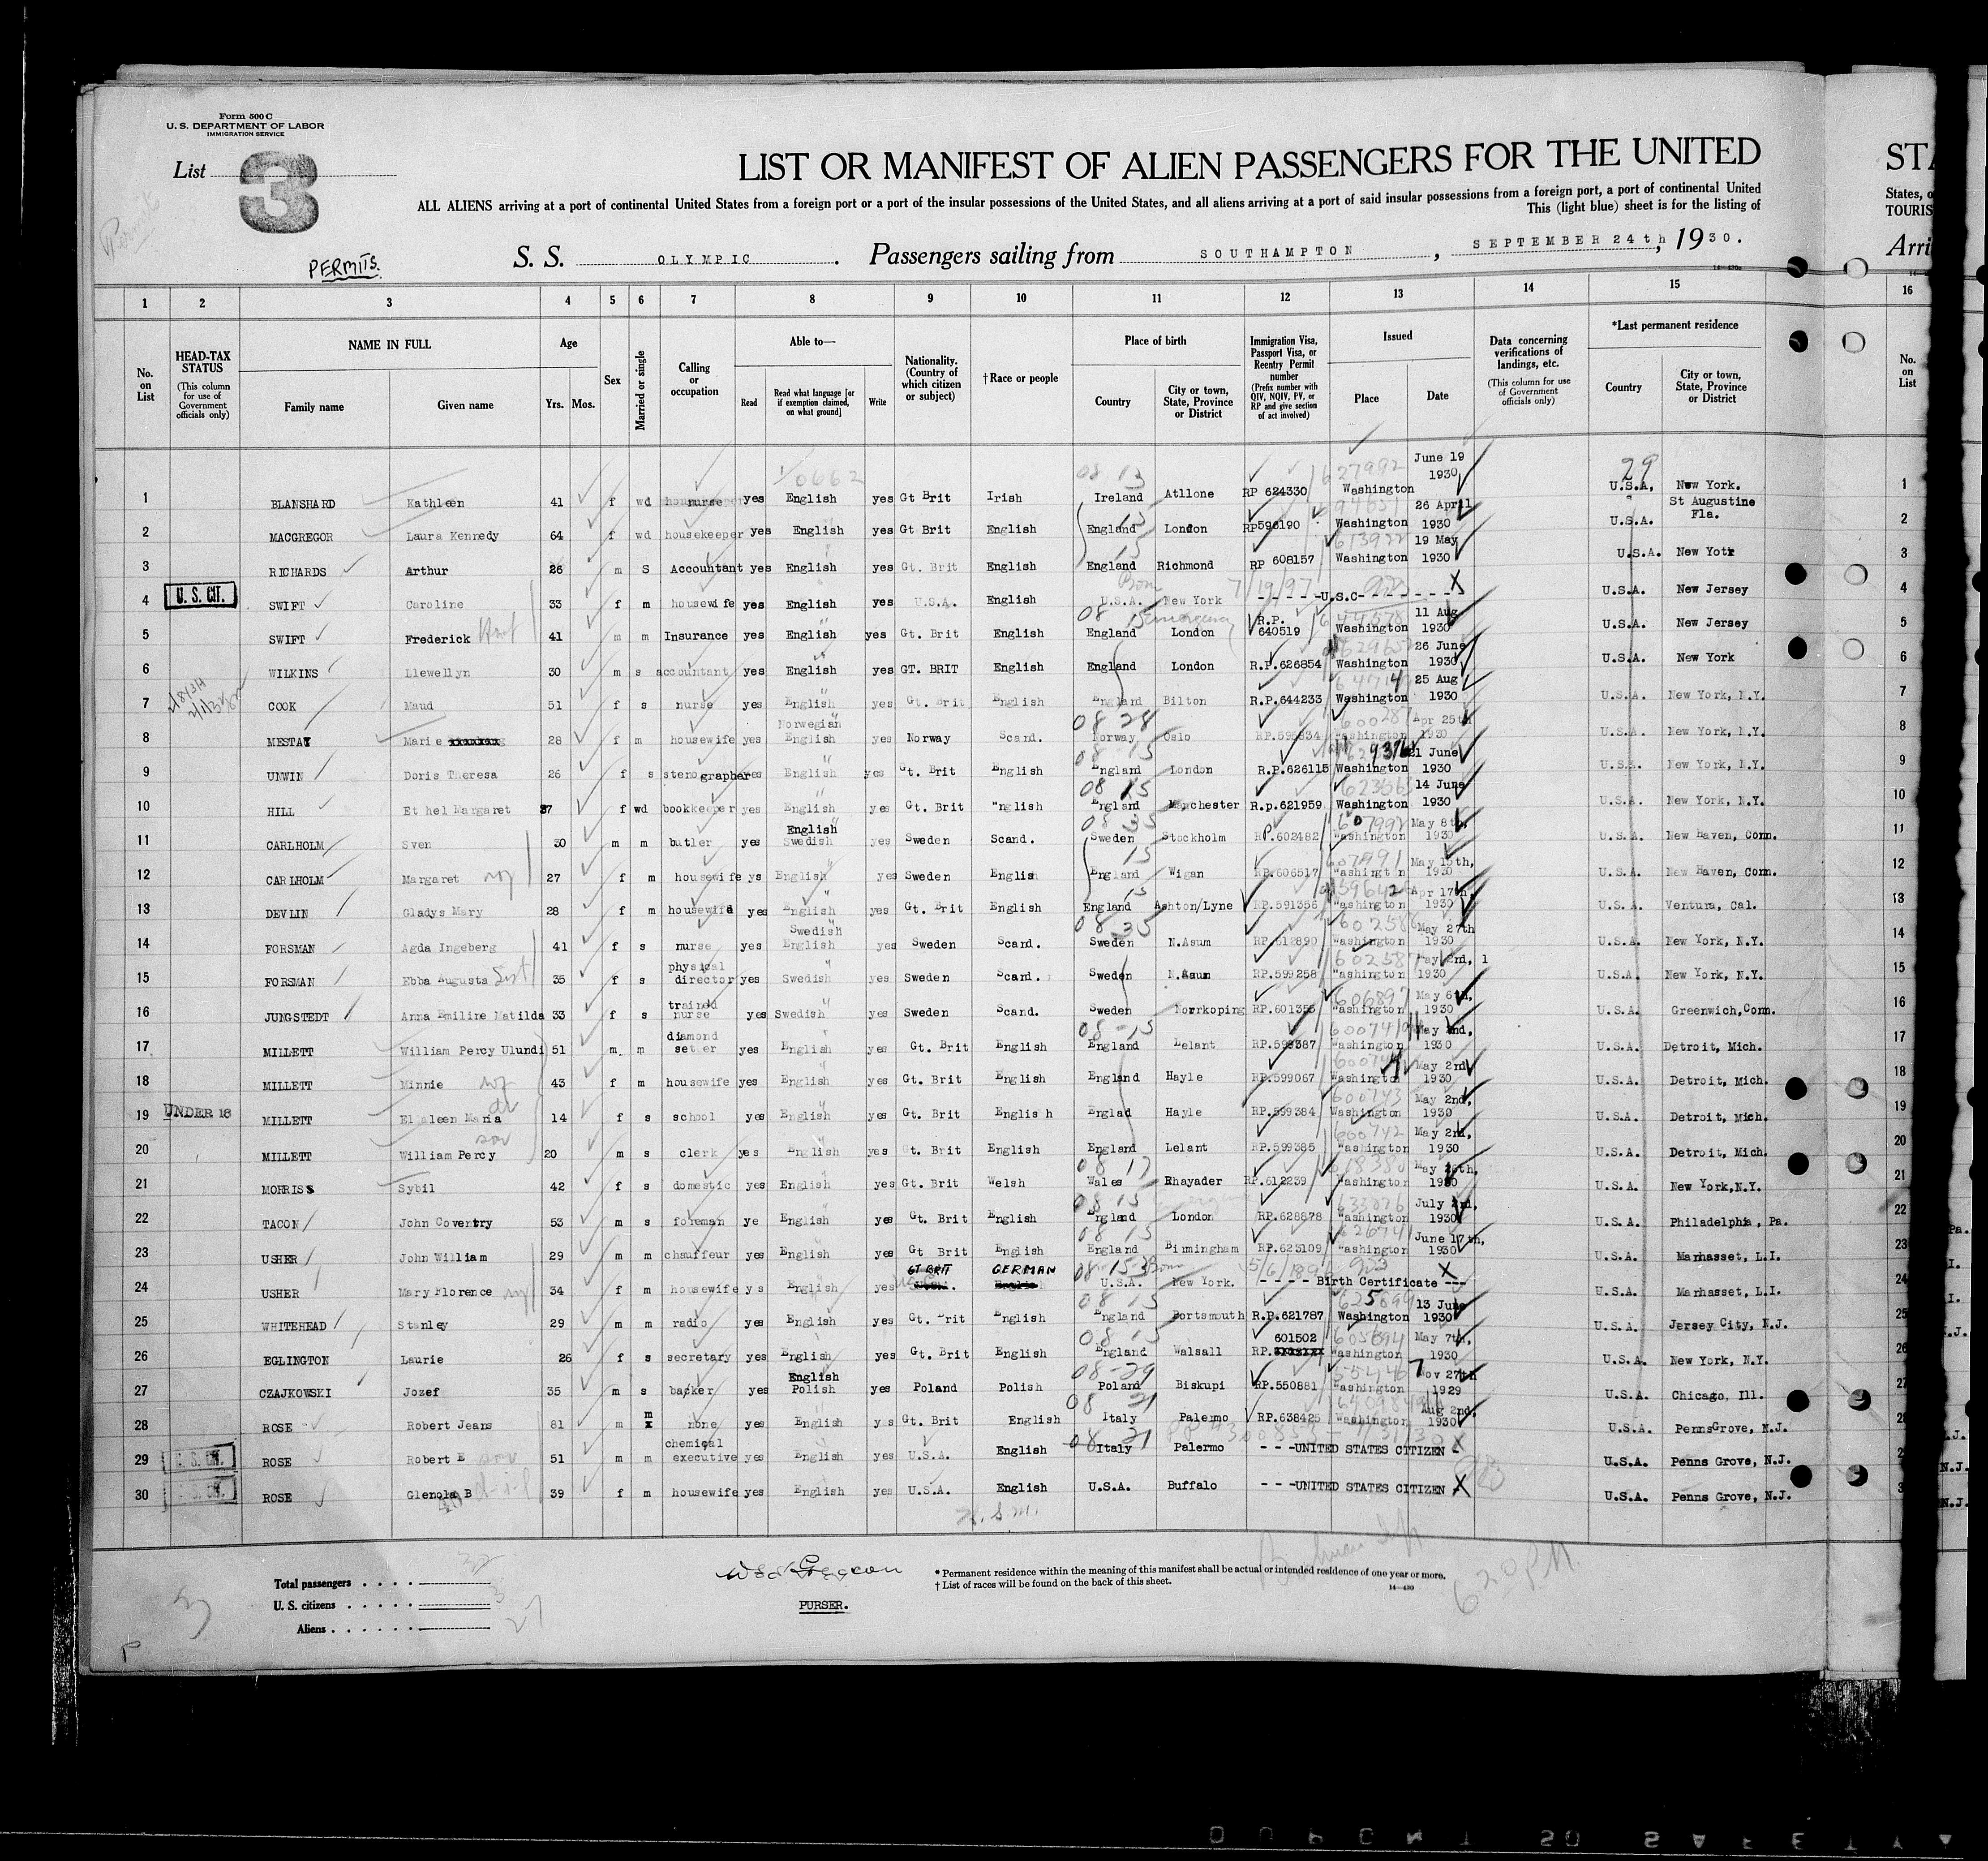 Form 500 C
U. S. DEPARTMENT OF LABOR
IMMIGRATION SERVICE
List 3
LIST OR MANIFEST OF ALIEN PASSENGERS FOR THE UNITED
ALL ALIENS arriving at a port of continental United States from a foreign port or a port of the insular possessions of the United States, and all aliens arriving at a port of said insular possessions from a foreign port, a port of continental United
This (light blue) sheet is for the listing of
PERMITS.
S. S. OLYMPIC. Passengers sailing from SOUTHAMPTON, SEPTEMBER 24th, 1930.
STA
States, o
TOURIS
Arri
1 2 3 4 5 6 7 8 9 10 11 12 13 14 15 16
No. on List
HEAD-TAX STATUS (This column for use of Government officials only)
NAME IN FULL
Family name Given name
Age Yrs. Mos.
Sex
Married or single
Calling or occupation
Able to— Read Read what language [or if exemption claimed, on what ground] Write
Nationality. (Country of which citizen or subject)
†Race or people
Place of birth Country City or town, State, Province or District
Immigration Visa, Passport Visa, or Reentry Permit number (Prefix number with QIV, NQIV, PV, or RP and give section of act involved)
Issued Place Date
Data concerning verifications of landings, etc. (This column for use of Government officials only)
*Last permanent residence Country City or town, State, Province or District
No. on List
1 BLANSHARD Kathleen 41 f wd nurse yes English yes Gt Brit Irish Ireland Atllone RP 624330 Washington June 19 1930 U.S.A, New York. 1
2 MACGREGOR Laura Kennedy 64 f wd housekeeper yes English yes Gt Brit English England London RP596190 Washington 26 April 1930 U.S.A. St Augustine Fla. 2
3 RICHARDS Arthur 26 m S Accountant yes English yes Gt. Brit English England Richmond RP 608157 Washington 19 May 1930 U.S.A. New Yotk 3
4 U. S. CIT. SWIFT Caroline 33 f m housewife yes English yes U.S.A. English U.S.A. New York - - - - -U.S.C- - - - - - - - X U.S.A. New Jersey 4
5 SWIFT Frederick 41 m m Insurance yes English yes Gt. Brit English England London R.P. 640519 Washington 11 Aug 1930 U.S.A. New Jersey 5
6 WILKINS Llewellyn 30 m s accountant yes English yes GT. BRIT English England London R.P.626854 Washington 26 June 1930 U.S.A. New York 6
7 COOK Maud 51 f s nurse yes English yes Gt. Brit English England Bilton R.P.644233 Washington 25 Aug 1930 U.S.A. New York, N.Y. 7
8 MESTAY Marie 28 f m housewife yes Norwegian English yes Norway Scand. Norway Oslo RP.595834 Washington Apr 25th 1930 U.S.A. New York, N.Y. 8
9 UNWIN Doris Theresa 26 f s stenographer es English yes Gt. Brit English England London R.P.626115 Washington 21 June 1930 U.S.A. New York, N.Y. 9
10 HILL Et hel Margaret 37 f wd bookkeeper yes English yes Gt. Brit English England Manchester R.p.621959 Washington 14 June 1930 U.S.A. New York, N.Y. 10
11 CARLHOLM Sven 30 m m butler yes English Swedish yes Sweden Scand. Sweden Stockholm RP.602482 Washington May 8th, 1930 U.S.A. New Haven, Conn. 11
12 CARLHOLM Margaret 27 f m housewife ys English yes Sweden English England Wigan RP.606517 Washington May 15th, 1930 U.S.A. New Haven, Conn. 12
13 DEVLIN Gladys Mary 28 f m housewife yes English yes Gt. Brit English England Ashton/Lyne RP.591356 Washington Apr 17th, 1930 U.S.A. Ventura, Cal. 13
14 FORSMAN Agda Ingeberg 41 f s nurse yes Swedish English yes Sweden Scand. Sweden N.Asum RP.612890 Washington May 27th 1930 U.S.A. New York, N.Y. 14
15 FORSMAN Ebba Augusta 35 f s physical director yes Swedish yes Sweden Scand. Sweden N.Asum RP.599258 Washington May 2nd, 1930 U.S.A. New York, N.Y. 15
16 JUNGSTEDT Anna Emiline Matilda 33 f s trained nurse yes Swedish yes Sweden Scand. Sweden Norrkoping RP.601355 Washington May 6th, 1930 U.S.A. Greenwich,Conn. 16
17 MILLETT William Percy Ulundi 51 m. m diamond setter yes English yes Gt. Brit English England Lelant RP.599387 Washington May 2nd, 1930 U.S.A. Detroit, Mich. 17
18 MILLETT Minnie 43 f m housewife yes English yes Gt. Brit English England Hayle RP.599067 Washington May 2nd 1930 U.S.A. Detroit, Mich. 18
19 UNDER 18 MILLETT Eileen Maria 14 f s school yes English yes Gt. Brit Englis h Englad Hayle RP.599384 Washington May 2nd, 1930 U.S.A. Detroit, Mich. 19
20 MILLETT William Percy 20 m s clerk yes English yes Gt. Brit English England Lelant RP.599385 Washington May 2nd, 1930 U.S.A. Detroit, Mich. 20
21 MORRIS Sybil 42 f s domestic yes English yes Gt. Brit Welsh Wales Rhayader RP.612239 Washington May 26th, 1930 U.S.A. New York,N.Y. 21
22 TACON John Coventry 53 m s foreman ye English yes Gt. Brit English England London RP.628878 Washington July 2nd, 1930 U.S.A. Philadelphia, Pa. 22
23 USHER John William 29 m m chauffeur yes English yes Gt Brit English England Birmingham RP.623109 Washington June 17th, 1930 U.S.A. Manhasset, L.I. 23
24 USHER Mary Florence 34 f m housewife y s English yes GT BRIT GERMAN U.S.A. New York. - - - - Birth Certificate --- X U.S.A. Manhasset, L.I. 24
25 WHITEHEAD Stanley 29 m m radio yes English yes Gt. Brit English England Portsmouth R.P.621787 Washington 13 June 1930 U.S.A. Jersey City, N.J. 25
26 EGLINGTON Laurie 26 f s secretary yes English yes Gt. Brit English England Walsall RP. 601502 Washington May 7th, 1930 U.S.A. New York, N.Y. 26
27 CZAJKOWSKI Jozef 35 m s barker yes English Polish yes Poland Polish Poland Biskupi RP.550881 Washington Nov 27th 1929 U.S.A. Chicago, Ill. 27
28 ROSE Robert Jeans 81 m m none yes English yes Gt. Brit English Italy Palermo RP.638425 Washington Aug 2nd, 1930 U.S.A. PennsGrove, N.J.
29 U. S. CIT. ROSE Robert E 51 m m chemical executive yes English yes U.S.A. English Italy Palermo - - -UNITED STATES CITIZEN X U.S.A. Penns Grove, N.J.
30 U. S. CIT. ROSE Glenola B 39 f m housewife yes English yes U.S.A. English U.S.A. Buffalo - - -UNITED STATES CITIZEN X U.S.A. Penns Grove, N.J.
Total passengers
U. S. citizens
Aliens 27
PURSER.
* Permanent residence within the meaning of this manifest shall be actual or intended residence of one year or more.
† List of races will be found on the back of this sheet.
14—430
620 P.M.
DUPONT SAFETY